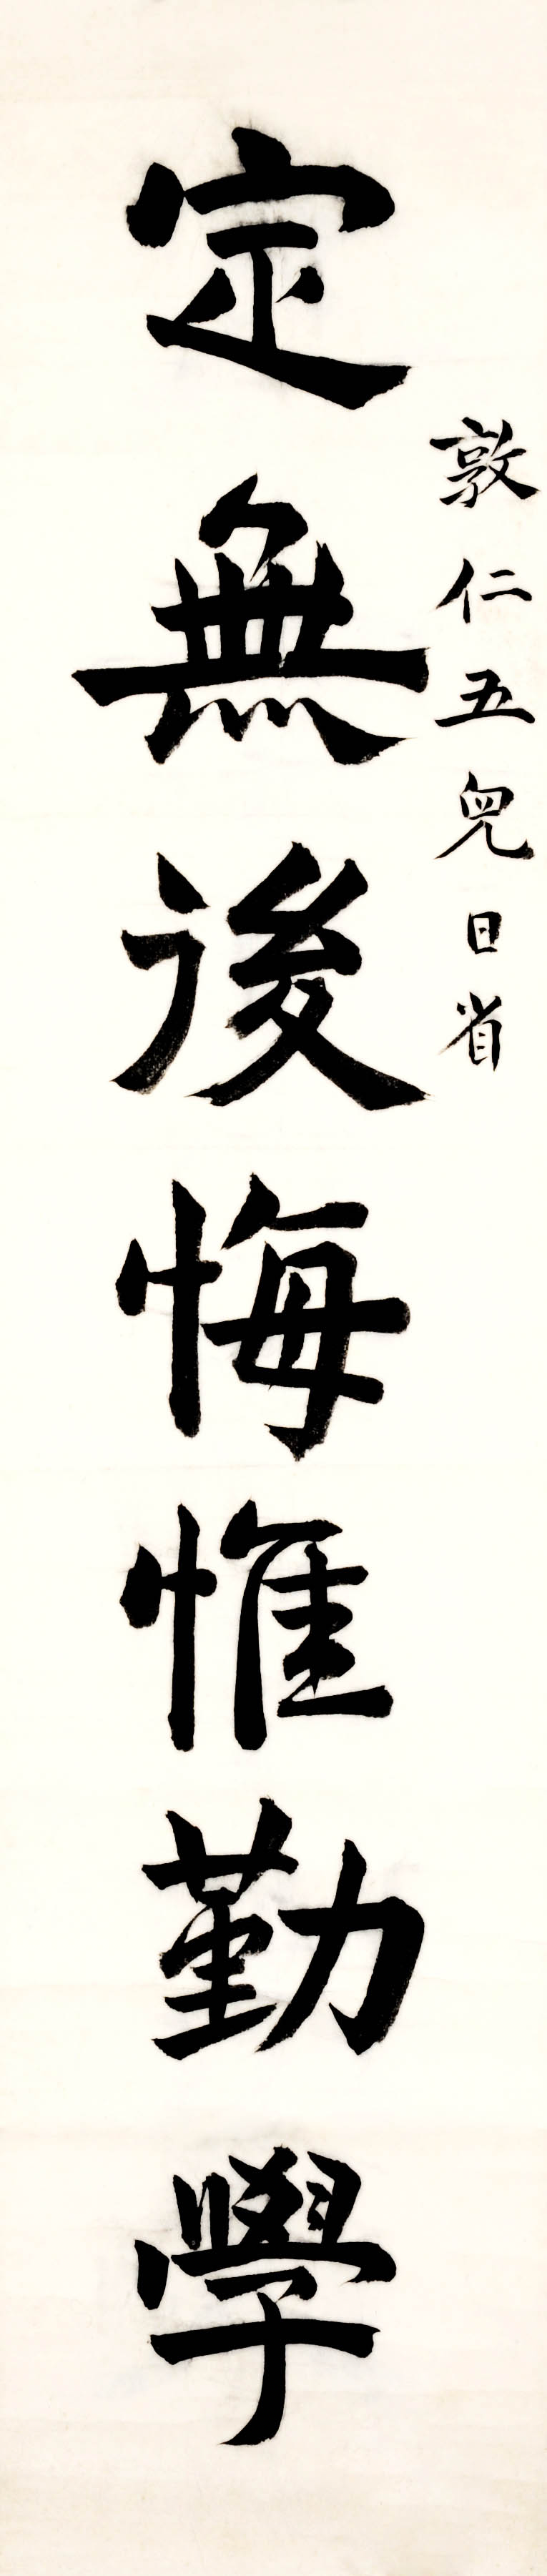 敦仁五兒日省
定無後悔惟勤學